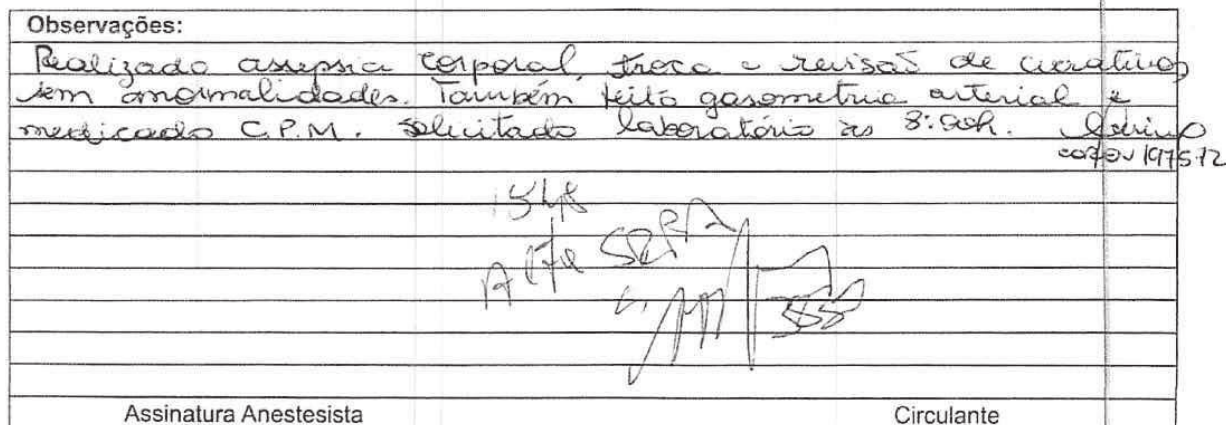 Observações:
Realizado assepsia corporal, troca e revisão de curativos
sem anormalidades. Também feito gasometria arterial e
medicado C.P.M. Solicitado laboratório às 8:00h.
197572
Alta SRPA
Assinatura Anestesista Circulante